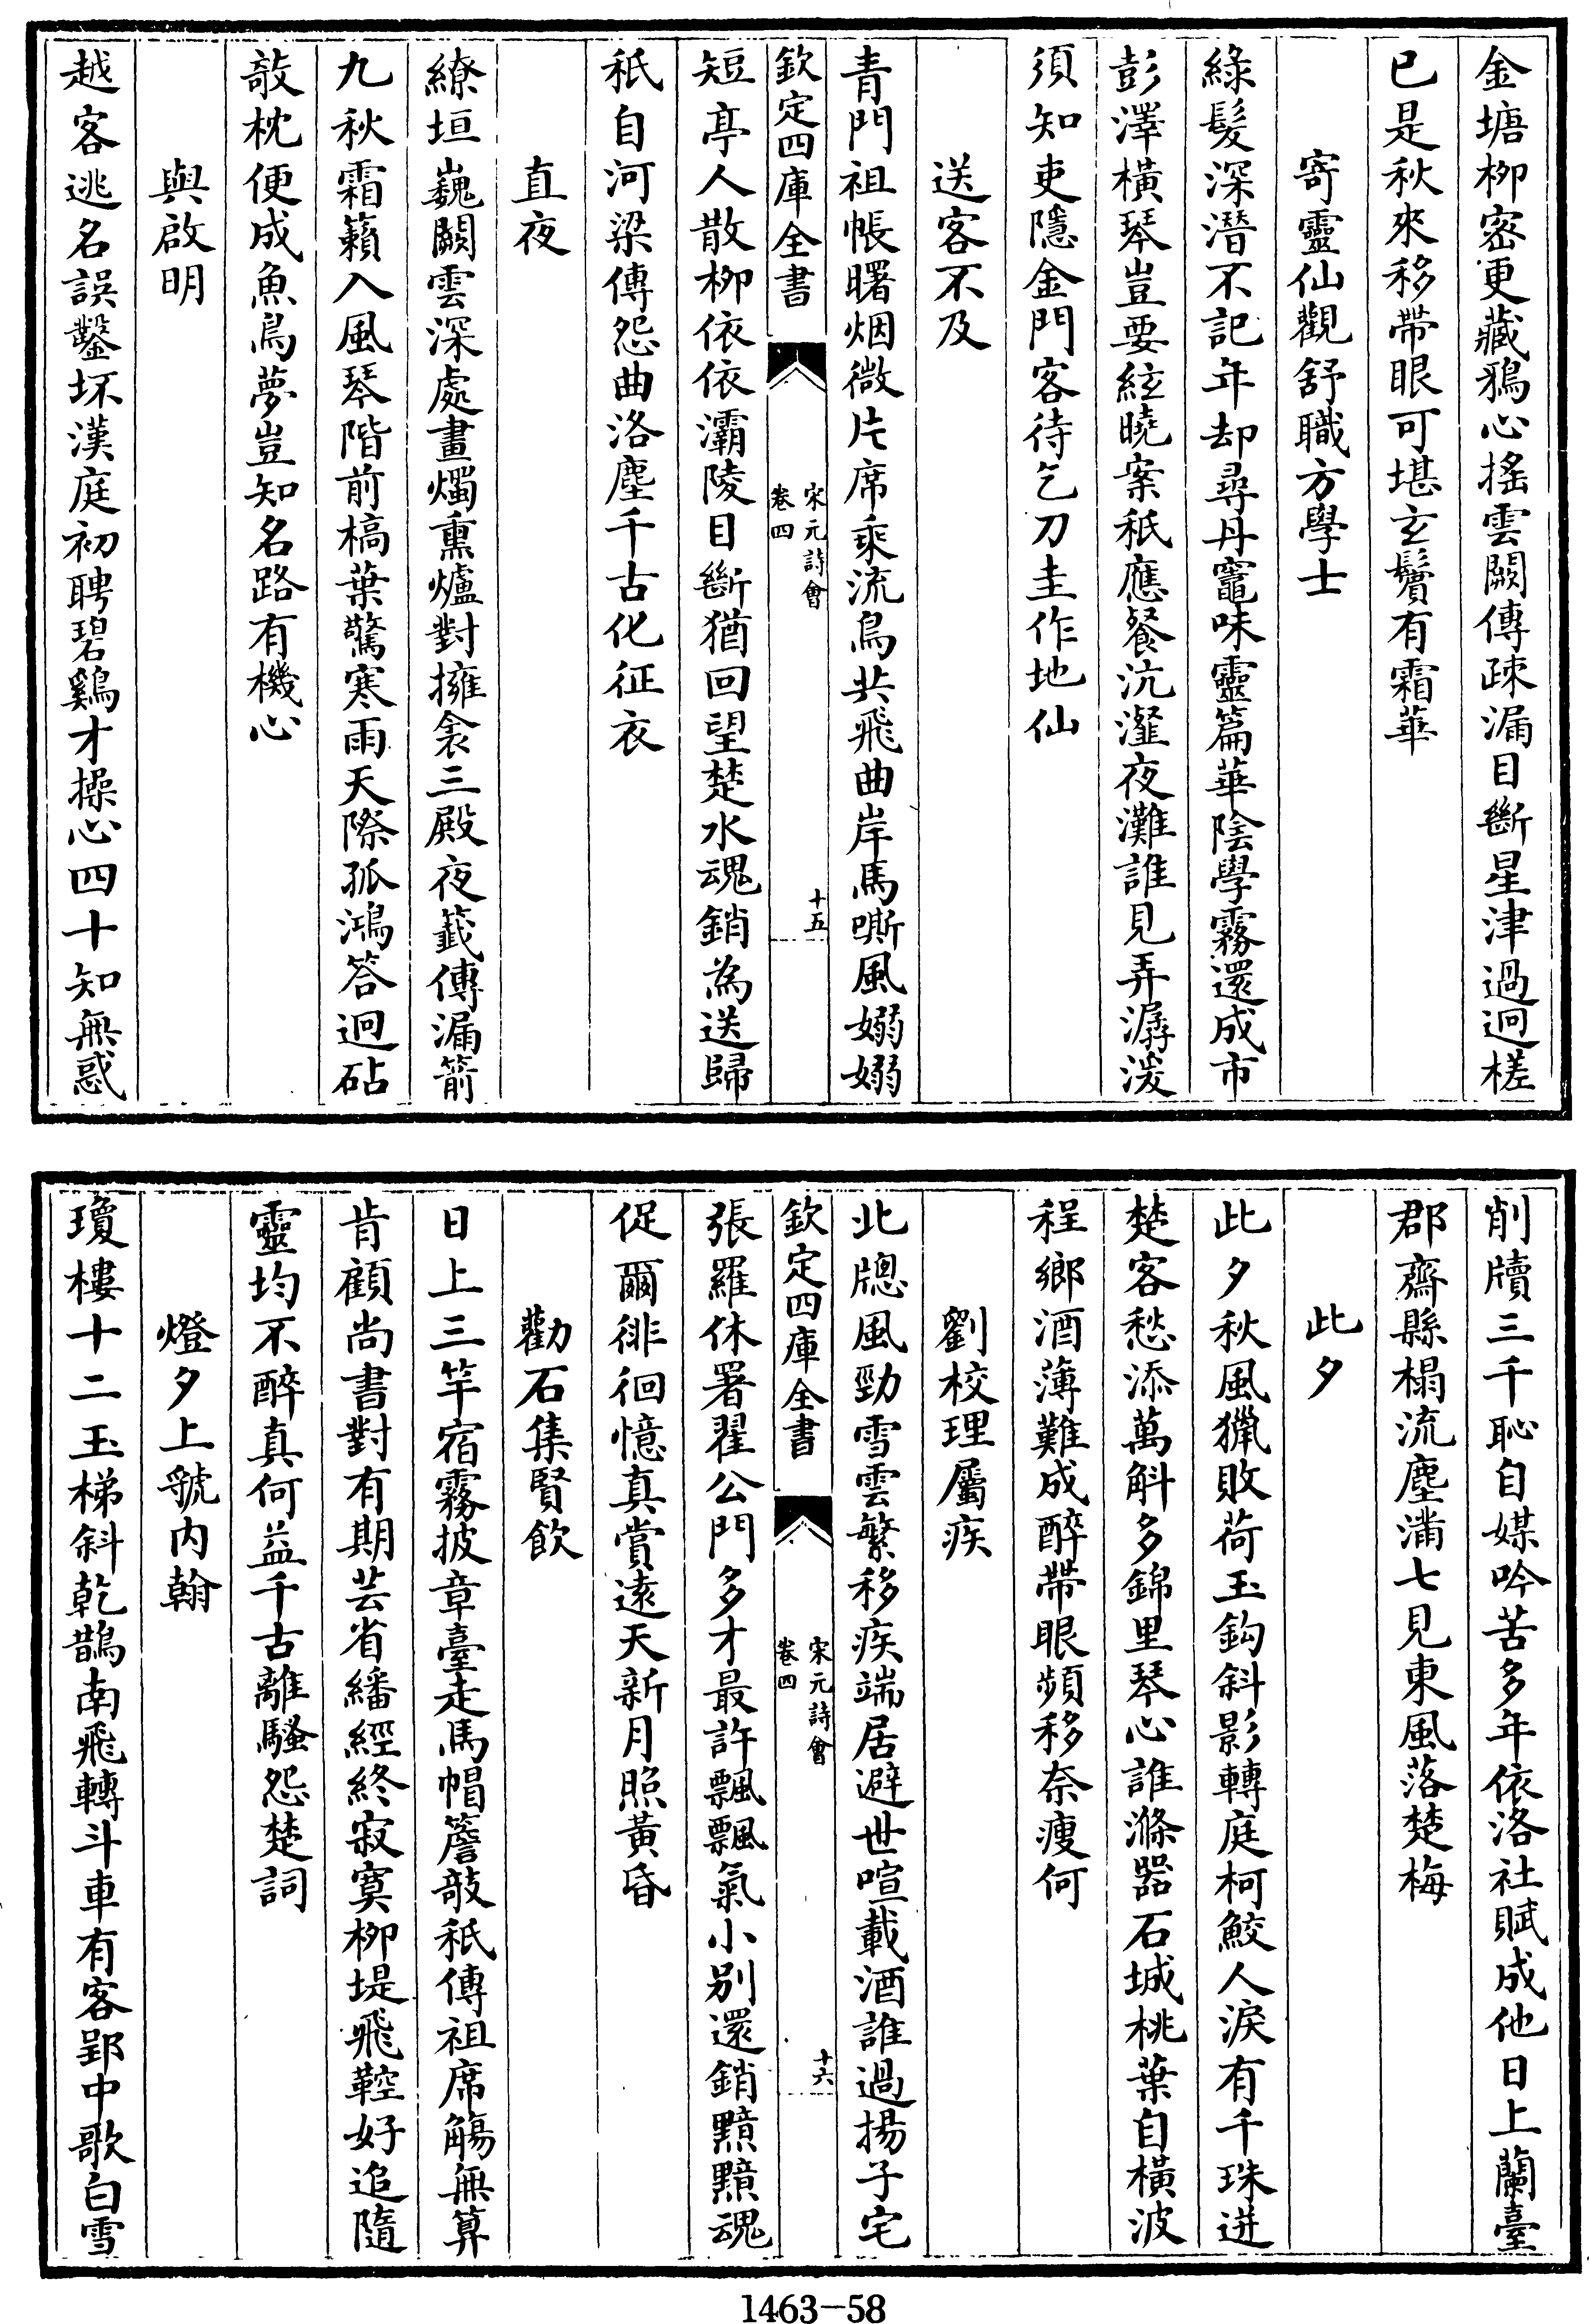 金塘柳密更藏鴉心搖雲闕傳疎漏目斷星津過迥槎
已是秋來移帶眼可堪玄鬢有霜華
寄靈仙觀舒職方學士
綠髮深潛不記年却尋丹竈味靈篇華陰學霧還成市
彭澤橫琴豈要絃曉案秪應餐沆瀣夜灘誰見弄潺湲
須知吏隱金門客待乞刀圭作地仙
送客不及
青門祖帳曙烟微片席乘流鳥共飛曲岸馬嘶風嫋嫋
欽定四庫全書
宋元詩會
卷四
十五
短亭人散柳依依灞陵目斷猶回望楚水魂銷為送歸
秪自河梁傳怨曲洛塵千古化征衣
直夜
繚垣巍闕雲深處畫燭熏爐對擁衾三殿夜籤傳漏箭
九秋霜籟入風琴階前槁葉驚寒雨天際孤鴻答迥砧
敧枕便成魚鳥夢豈知名路有機心
與啟明
越客逃名誤鑿坏漢庭初聘碧鷄才操心四十知無惑
削牘三千恥自媒吟苦多年依洛社賦成他日上蘭臺
郡齋縣榻流塵滿七見東風落楚梅
此夕
此夕秋風獵敗荷玉鈎斜影轉庭柯鮫人淚有千珠迸
楚客愁添萬斛多錦里琴心誰滌器石城桃葉自橫波
程鄉酒薄難成醉帶眼頻移奈瘦何
劉校理屬疾
北牕風勁雪雲繁移疾端居避世喧載酒誰過揚子宅
欽定四庫全書
宋元詩會
卷四
十六
張羅休署翟公門多才最許飄飄氣小別還銷黯黯魂
促爾徘徊憶真賞遠天新月照黃昏
勸石集賢飲
日上三竿宿霧披章臺走馬帽簷敧秪傳祖席觴無算
肯顧尚書對有期芸省繙經終寂寞柳堤飛鞚好追隨
靈均不醉真何益千古離騷怨楚詞
燈夕上虢內翰
瓊樓十二玉梯斜乾鵲南飛轉斗車有客郢中歌白雪
1463-58